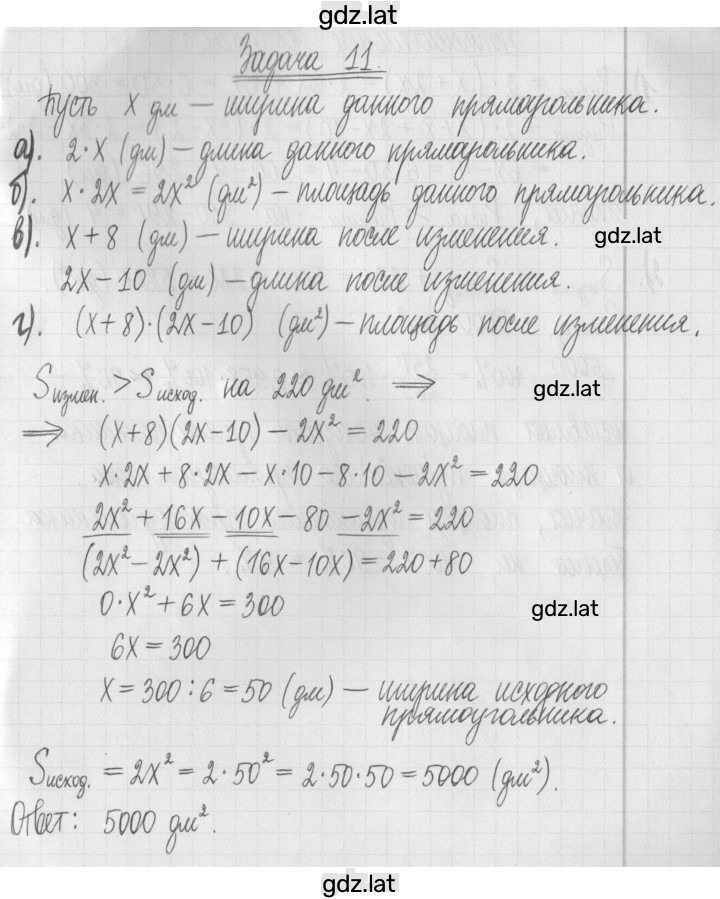 gdz.lat
Задача 11.
Пусть x дм – ширина данного прямоугольника.
а). 2·x (дм) – длина данного прямоугольника.
б). x·2x = 2x² (дм²) – площадь данного прямоугольника.
в). x+8 (дм) – ширина после изменения.
gdz.lat
2x–10 (дм) – длина после изменения.
г). (x+8)·(2x–10) (дм²) – площадь после изменения.
Sизмен. > Sисход. на 220 дм². ⇒
gdz.lat
⇒ (x+8)(2x–10) – 2x² = 220
x·2x + 8·2x – x·10 – 8·10 – 2x² = 220
2x² + 16x – 10x – 80 – 2x² = 220
(2x² – 2x²) + (16x – 10x) = 220 + 80
0·x² + 6x = 300
gdz.lat
6x = 300
x = 300 : 6 = 50 (дм) – ширина исходного
прямоугольника.
Sисход. = 2x² = 2·50² = 2·50·50 = 5000 (дм²).
Ответ: 5000 дм².
gdz.lat